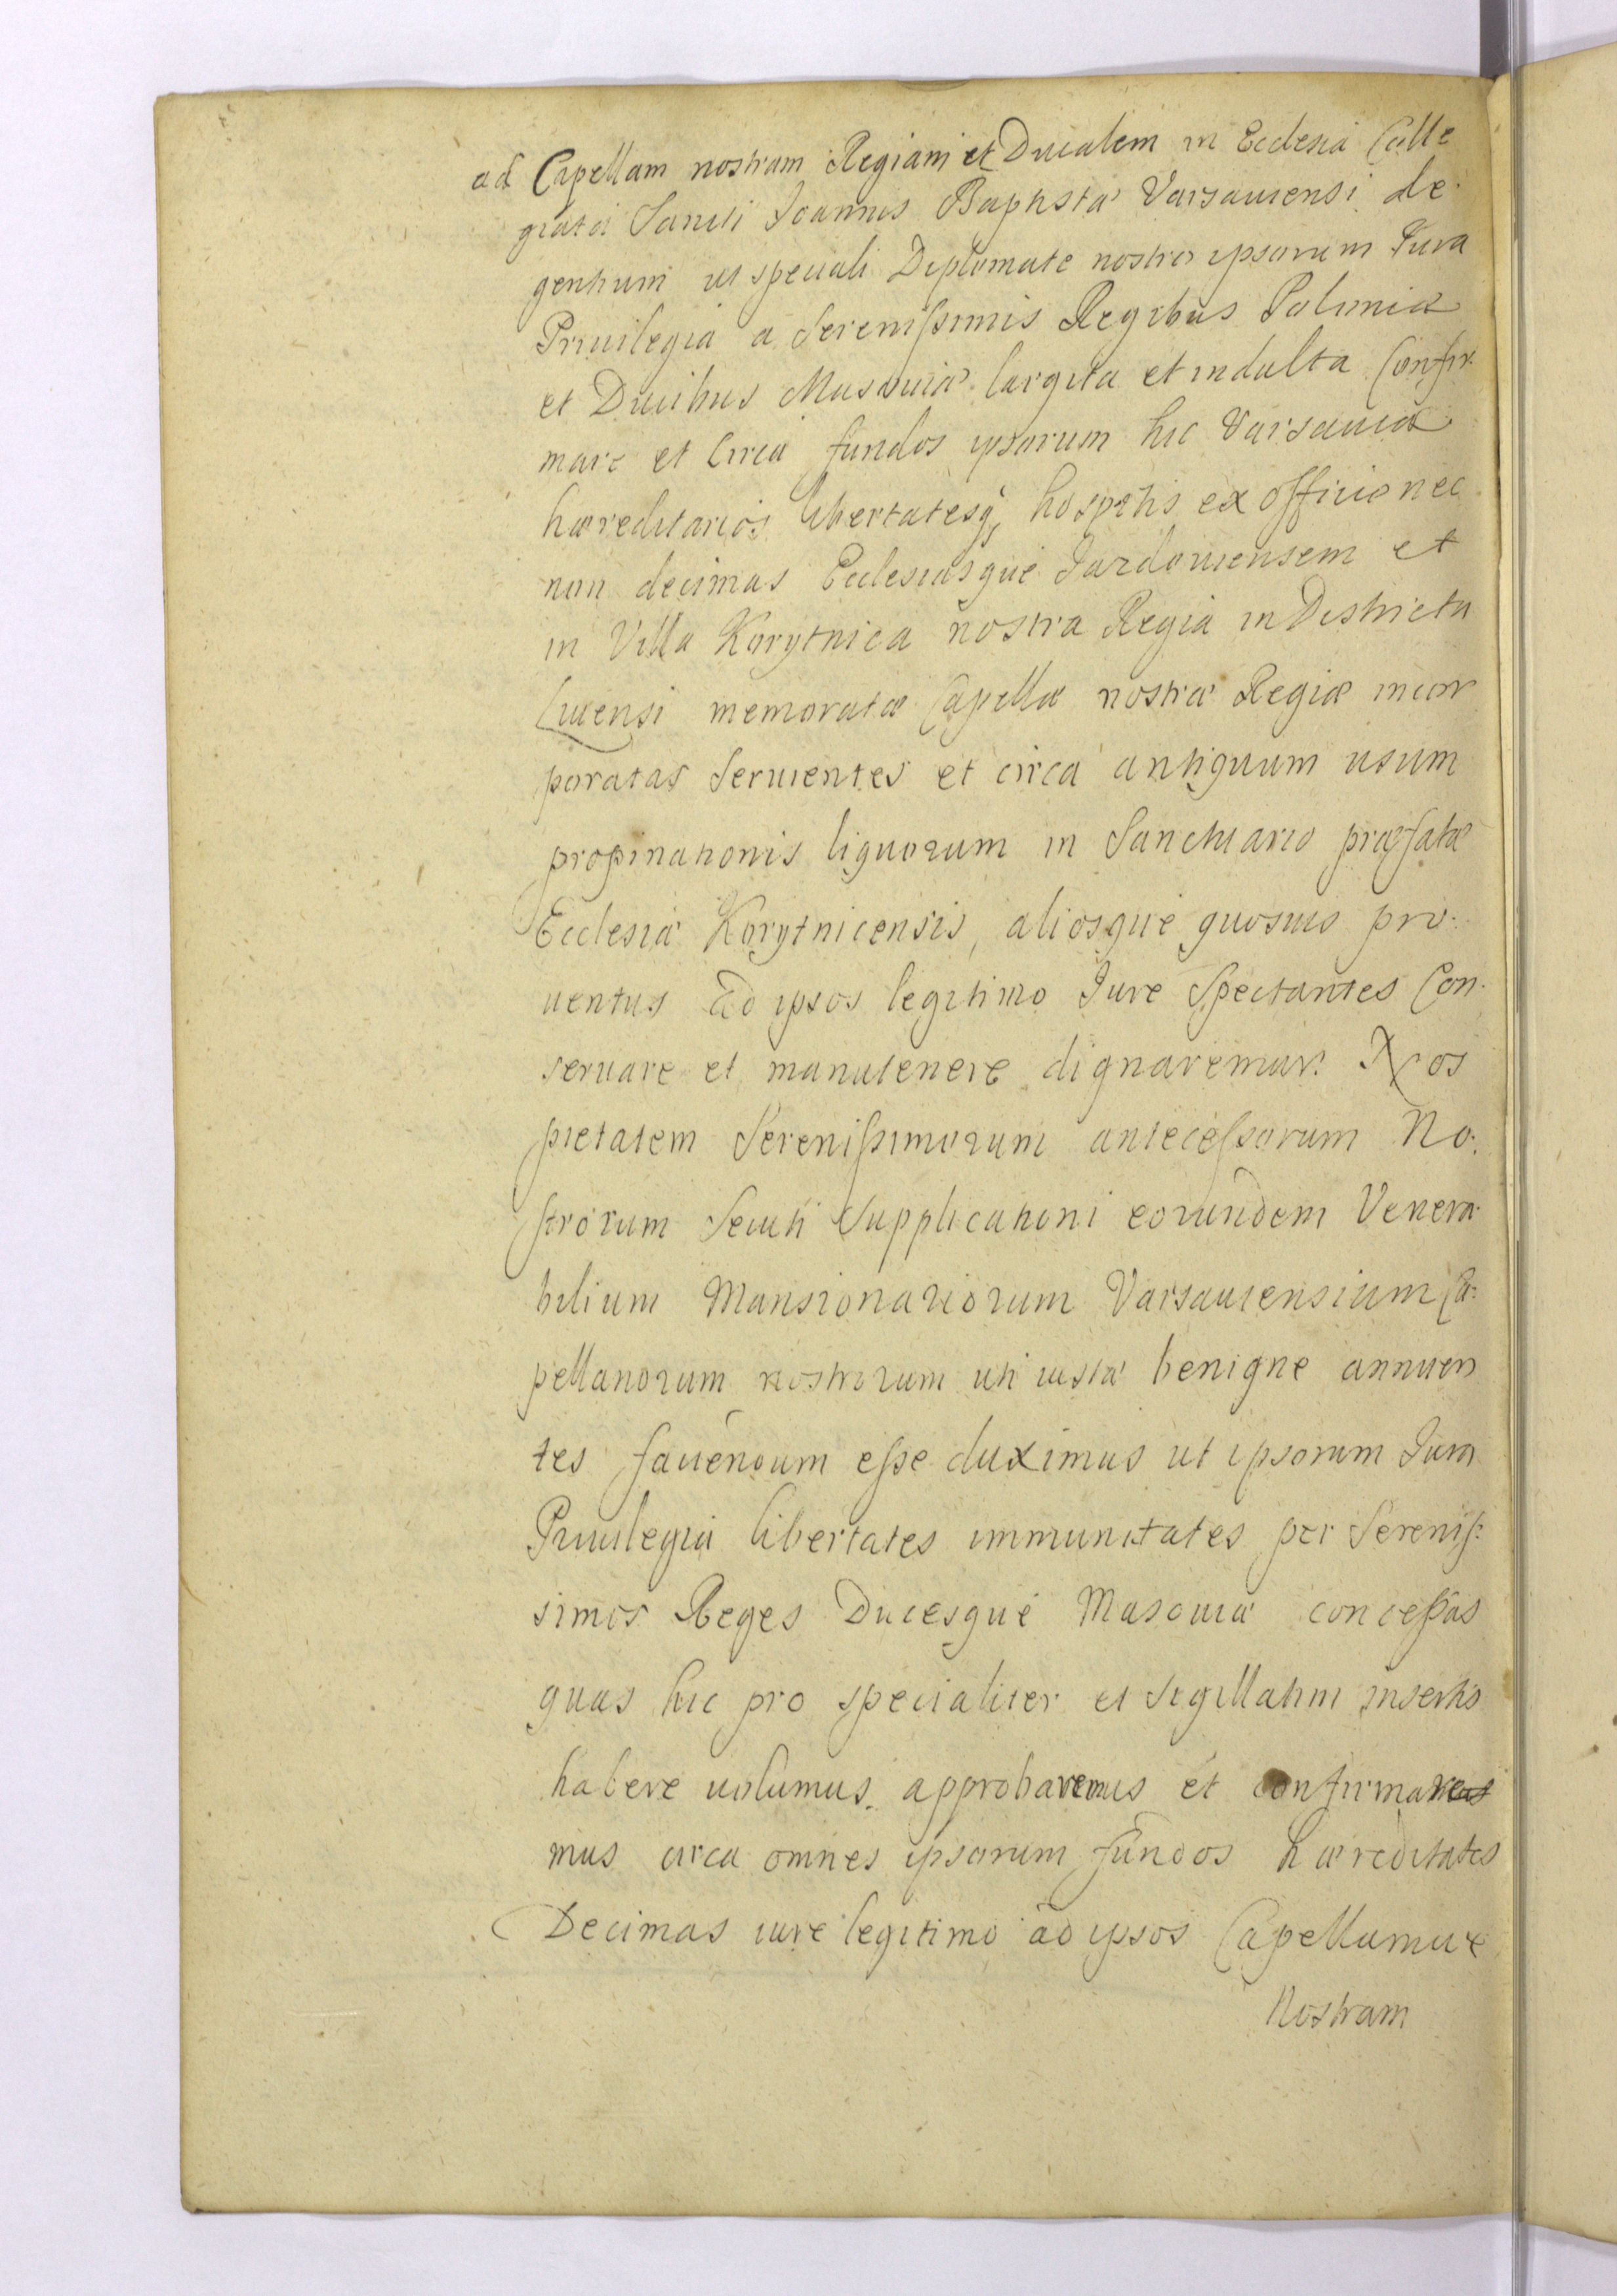 ad Capellam nostram Regiam et Ducalem in Ecclesia Colle
giata Sancti Joannis Baptistæ Varsauiensi de
gentium ut speciali Diplomate nostro ipsorum Jura
Priuilegia a Serenissimis Regibus Poloniæ
et Ducibus Masouiæ largita et indulta Confir
mare et Circa fundos ipsorum hic Varsauiæ
hæreditarios libertatesq hospitis ex officio nec
non decimas Ecclesiasque Jazdouiensem et
in Villa Korytnica nostra Regia in Districtu
Liuensi memoratæ Capellæ nostræ Regiæ incor
poratas Seruientes et circa antiquum usum
propinationis liquorum in Sanctuario præfatæ
Ecclesiæ Korytnicensis, aliosque quosuis pro
uentus ad ipsos legitimo Jure Spectantes Con
seruare et manutenere dignaremur. Nos
pietatem Serenissimorum antecessorum No
strorum Secuti Supplicationi eorundem Venera
bilium Mansionariorum Varsauiensium Ca
pellanorum nostrorum uti iustæ benigne annuen
tes fauendum esse duximus ut ipsorum Jura
Priuilegia libertates immunitates per Serenis
simos Reges Ducesque Masouiæ concessas
quas hic pro specialiter et sigillatim insertis
habere uolumus approbaremus et confirmare
mus circa omnes ipsorum fundos hæreditates
Decimas iure legitimo ad ipsos Capellamue
Nostram